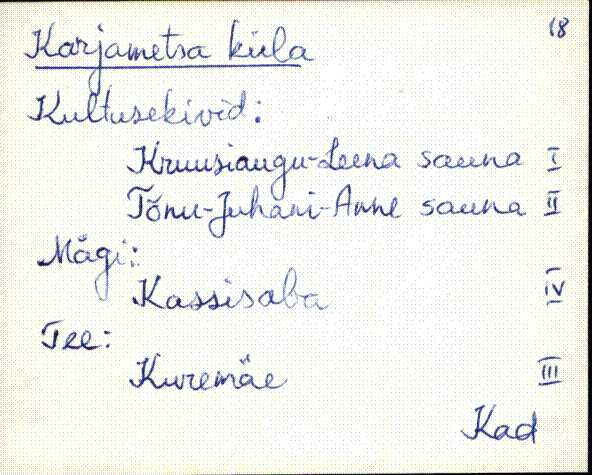 18
Karjametsa küla
Kultusekivid:
Kruusiaugu-Leena sauna I
Tõnu-Juhani-Anne sauna II
Mägi:
Kassisaba IV
Tee:
Kuremäe III
Kad